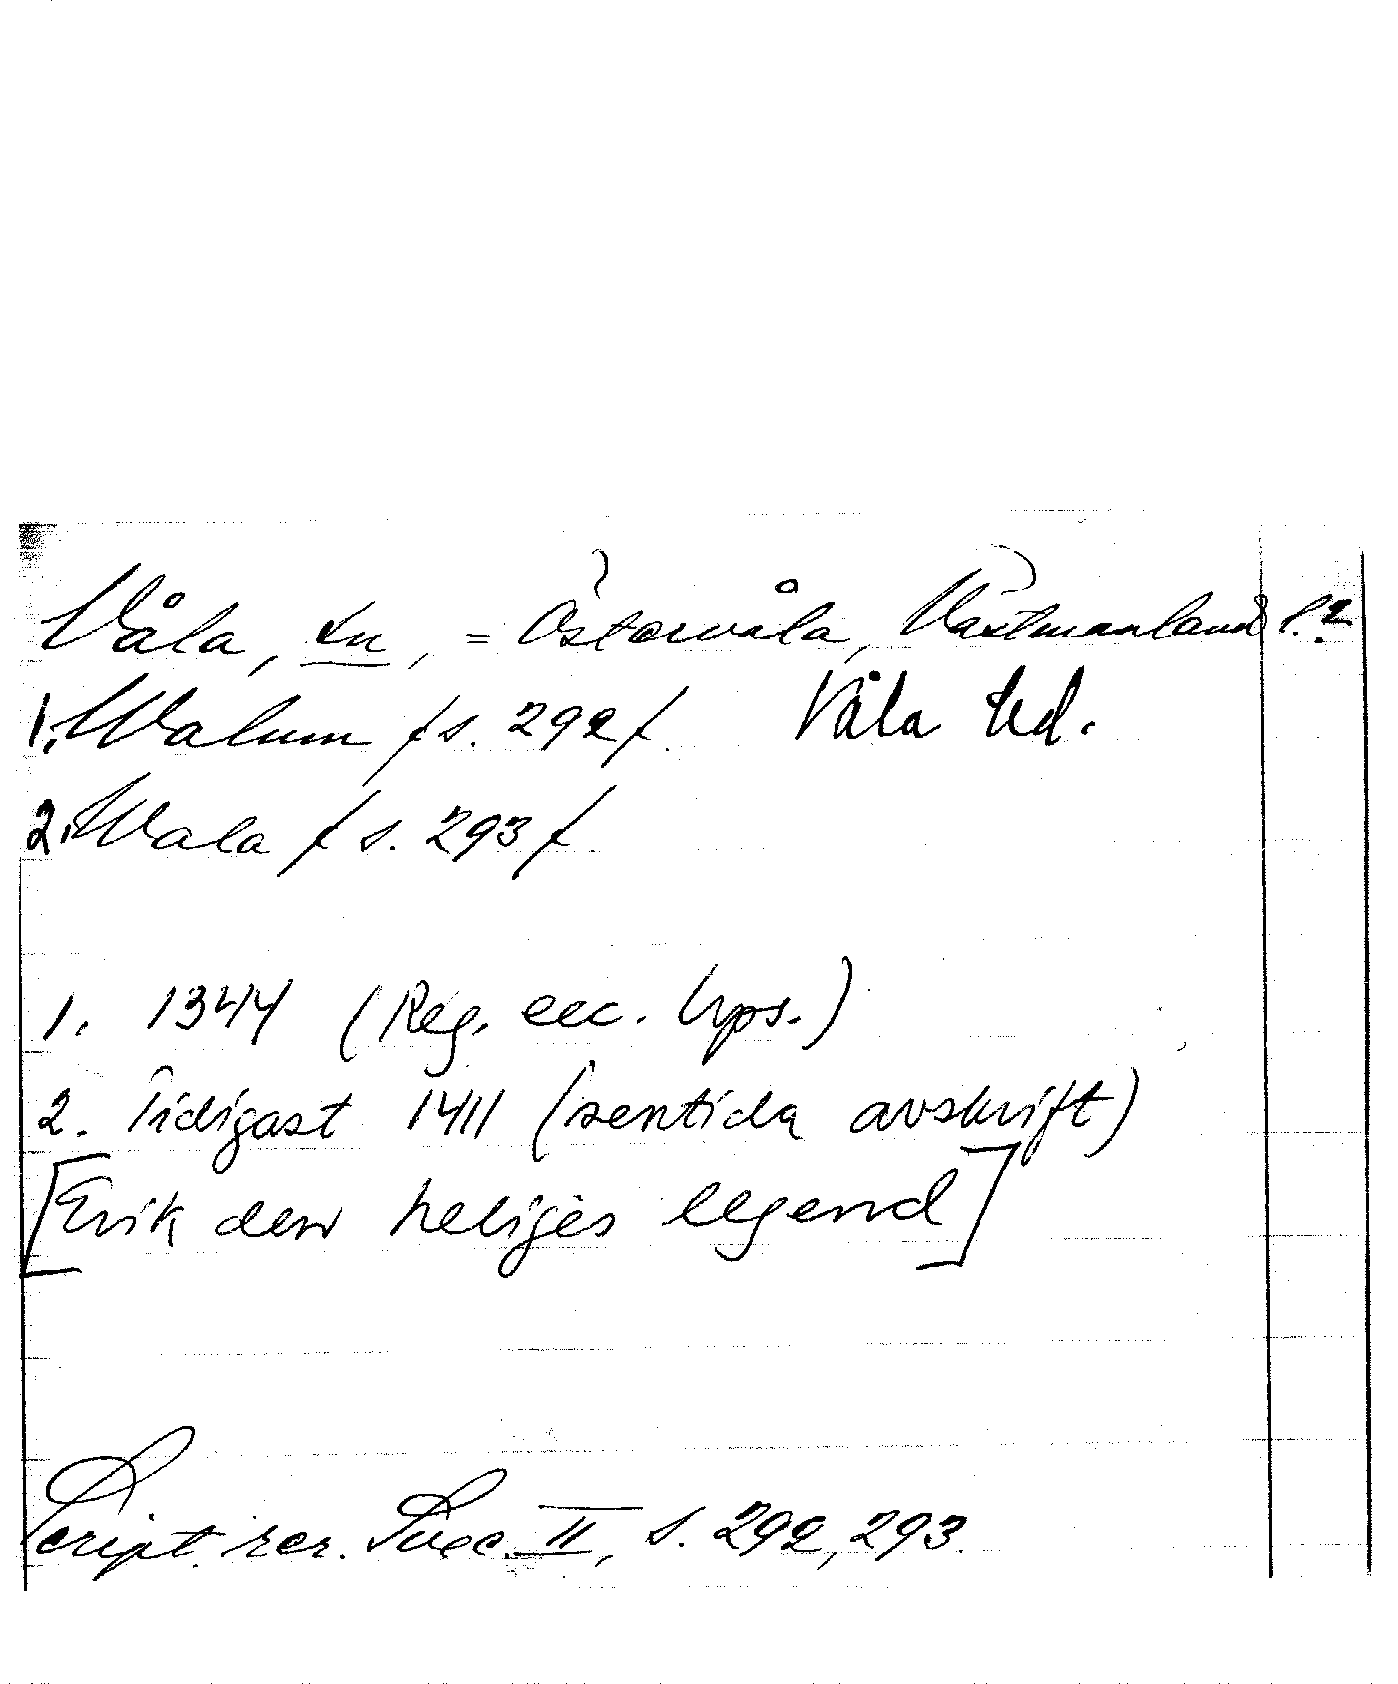 Våla, sn, = Östervåla, Västmanlands l.?
1. Walum / s. 292 /. Våla hd.
2. Wala / s. 293 /.
1. 1344 (Reg. ecc. Ups.)
2. Tidigast 1411 (sentida avskrift)
[Erik den heliges legend]
Script. rer. Suec. II, s. 292, 293.